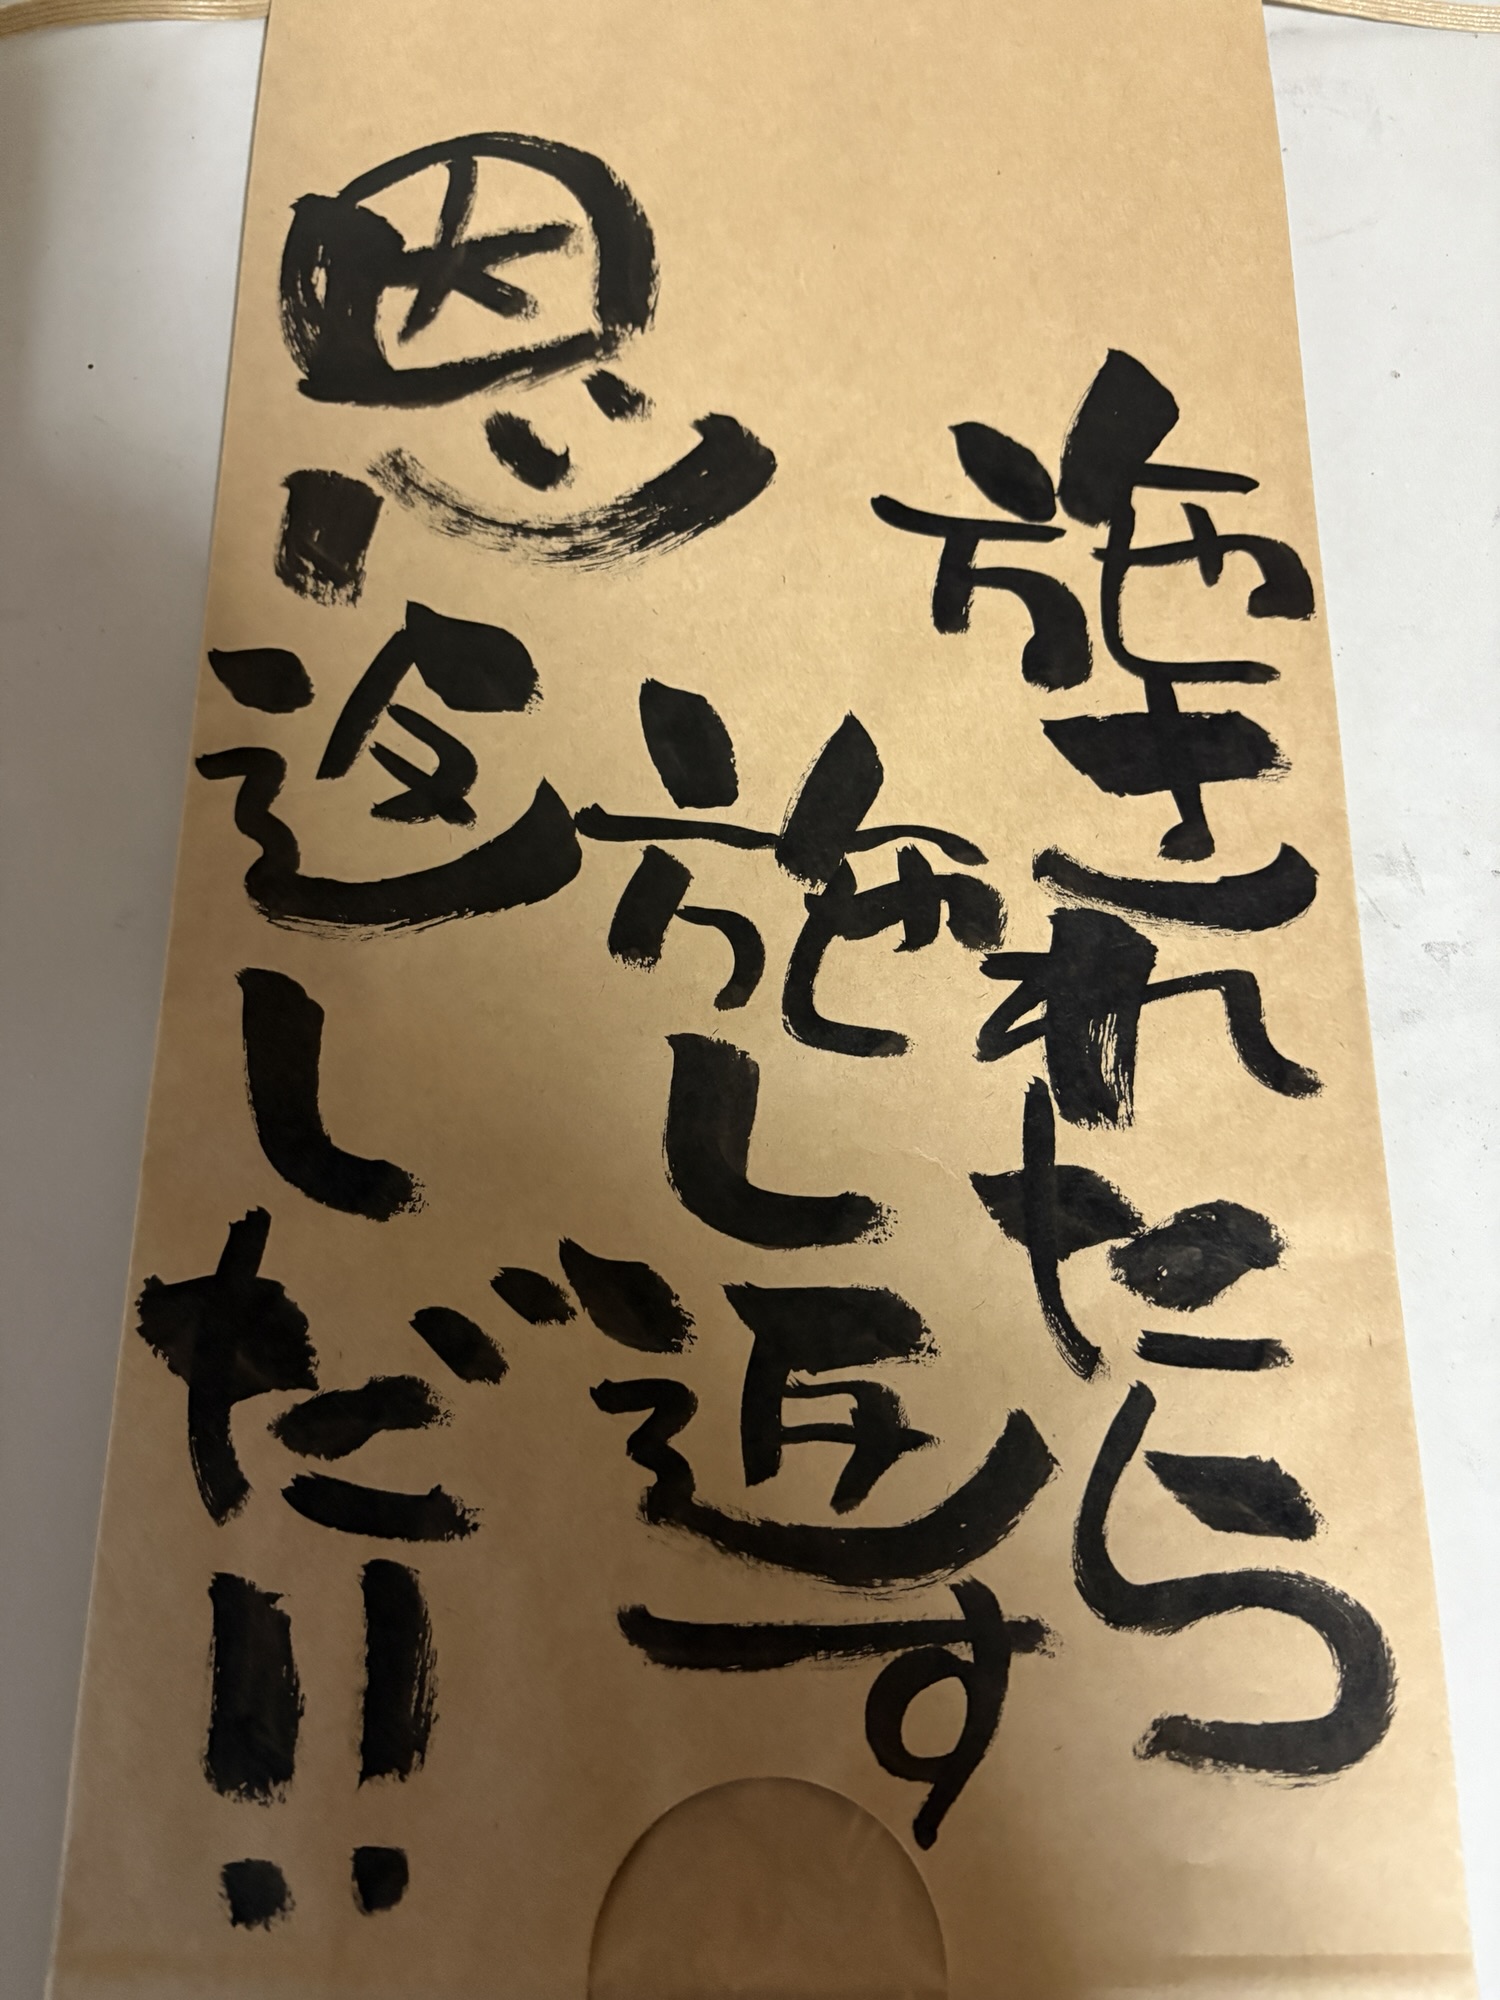 施されたら
施し返す
恩返しだ!!